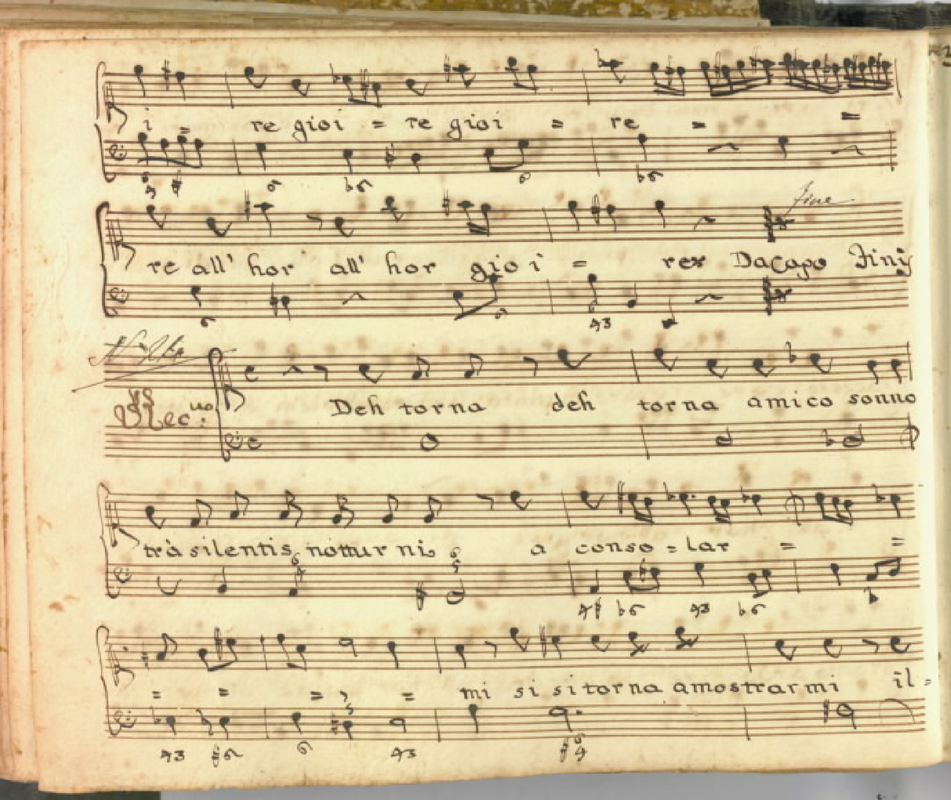 i = re gioi = re gioi = re = =
re all' hor all' hor gioi = rex DaCapo Finis
fine
Rec.uo Deh torna deh torna amico sonno
trà silentis notturnis a conso = lar = =
= = = , = mi si si torna a mostrarmi il =